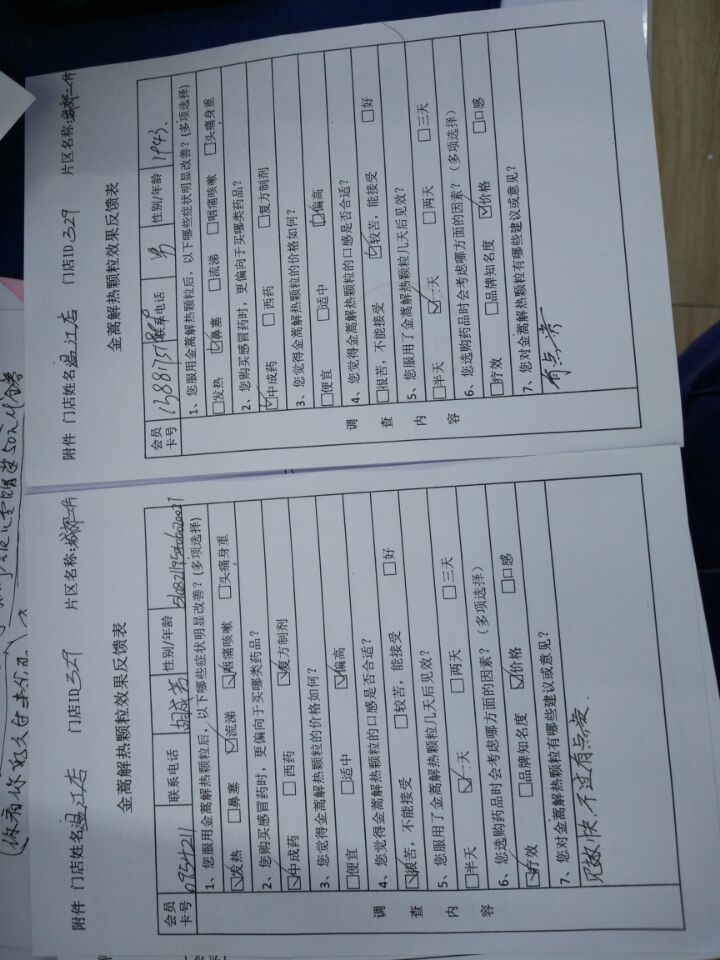 附件 门店姓名温江店 门店ID 329 片区名称:
金蒿解热颗粒效果反馈表
会员卡号 联系电话 性别/年龄 男 1943、
1、您服用金蒿解热颗粒后，以下哪些症状明显改善？(多项选择)
□发热 ☑鼻塞 □流涕 □咽痛咳嗽 □头痛身重
2、您购买感冒药时，更偏向于买哪类药品？
☑中成药 □西药 □复方制剂
3、您觉得金蒿解热颗粒的价格如何？
□便宜 □适中 ☑偏高
4、您觉得金蒿解热颗粒的口感是否合适？
□很苦，不能接受 ☑较苦，能接受 □好
5、您服用了金蒿解热颗粒几天后见效？
□半天 ☑一天 □两天 □三天
6、您选购药品时会考虑哪方面的因素？（多项选择）
□疗效 □品牌知名度 ☑价格 □口感
7、您对金蒿解热颗粒有哪些建议或意见？
有点贵
调查内容
附件 门店姓名温江店 门店ID 329 片区名称:
金蒿解热颗粒效果反馈表
会员卡号 0954211 联系电话 性别/年龄
1、您服用金蒿解热颗粒后，以下哪些症状明显改善？(多项选择)
☑发热 □鼻塞 ☑流涕 ☑咽痛咳嗽 □头痛身重
2、您购买感冒药时，更偏向于买哪类药品？
☑中成药 □西药 ☑复方制剂
3、您觉得金蒿解热颗粒的价格如何？
□便宜 □适中 ☑偏高
4、您觉得金蒿解热颗粒的口感是否合适？
☑很苦，不能接受 □较苦，能接受 □好
5、您服用了金蒿解热颗粒几天后见效？
□半天 ☑一天 □两天 □三天
6、您选购药品时会考虑哪方面的因素？（多项选择）
☑疗效 □品牌知名度 ☑价格 □口感
7、您对金蒿解热颗粒有哪些建议或意见？
见效快，不过有点贵.
调查内容